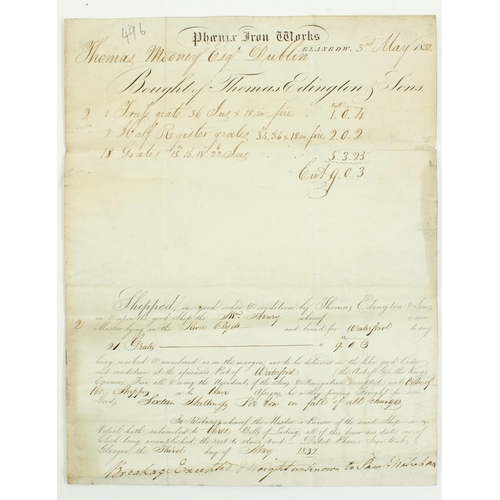 496
Phœnix Iron Works
GLASGOW, 3rd May 1832
Thomas Mooney Esqr Dublin
Bought of Thomas Edington & Sons
2 1 grate 36 Ins x 18 in fire 1. 0. 4
2 Half Register grates 36 x 18 in fire 2. 0. 2
18 Grates 15. 16. 18. 22 Ins 5. 3. 25
Cwt 9. 0. 3
Shipped, in good order & condition by Thomas Edington & Sons
in & upon the good Ship the Henry whereof
2 Master lying in the River Clyde and bound for Waterford to say
21 Grates 9. 0. 3
being marked & numbered as in the margin, are to be delivered in the like good Order
and condition at the aforesaid Port of Waterford the Act of God the King's
Enemies, Fire, all & every the Accidents of the Seas & Navigation excepted unto Order of
the Shippers or Assigns he or they paying Freight for said
Goods Sixteen Shillings Per Ton in full of all charges
In Witness whereof the Master or Purser of the said Ship
hath subscribed to three Bills of Lading, all of this tenor and date, one of
which being accomplished the rest to stand void. Dated Phœnix Iron Works,
Glasgow the Third day of May 1832
Breakage Excepted & Weight unknown to